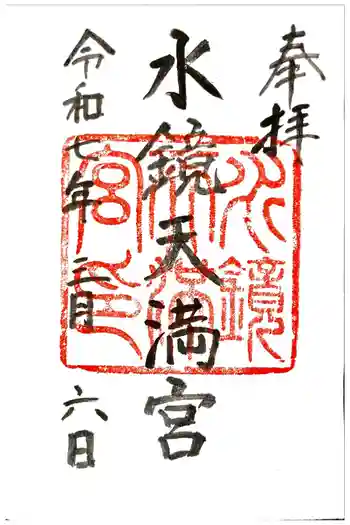 奉拝
水鏡天満宮
令和七年二月六日
水鏡
天満
宮印